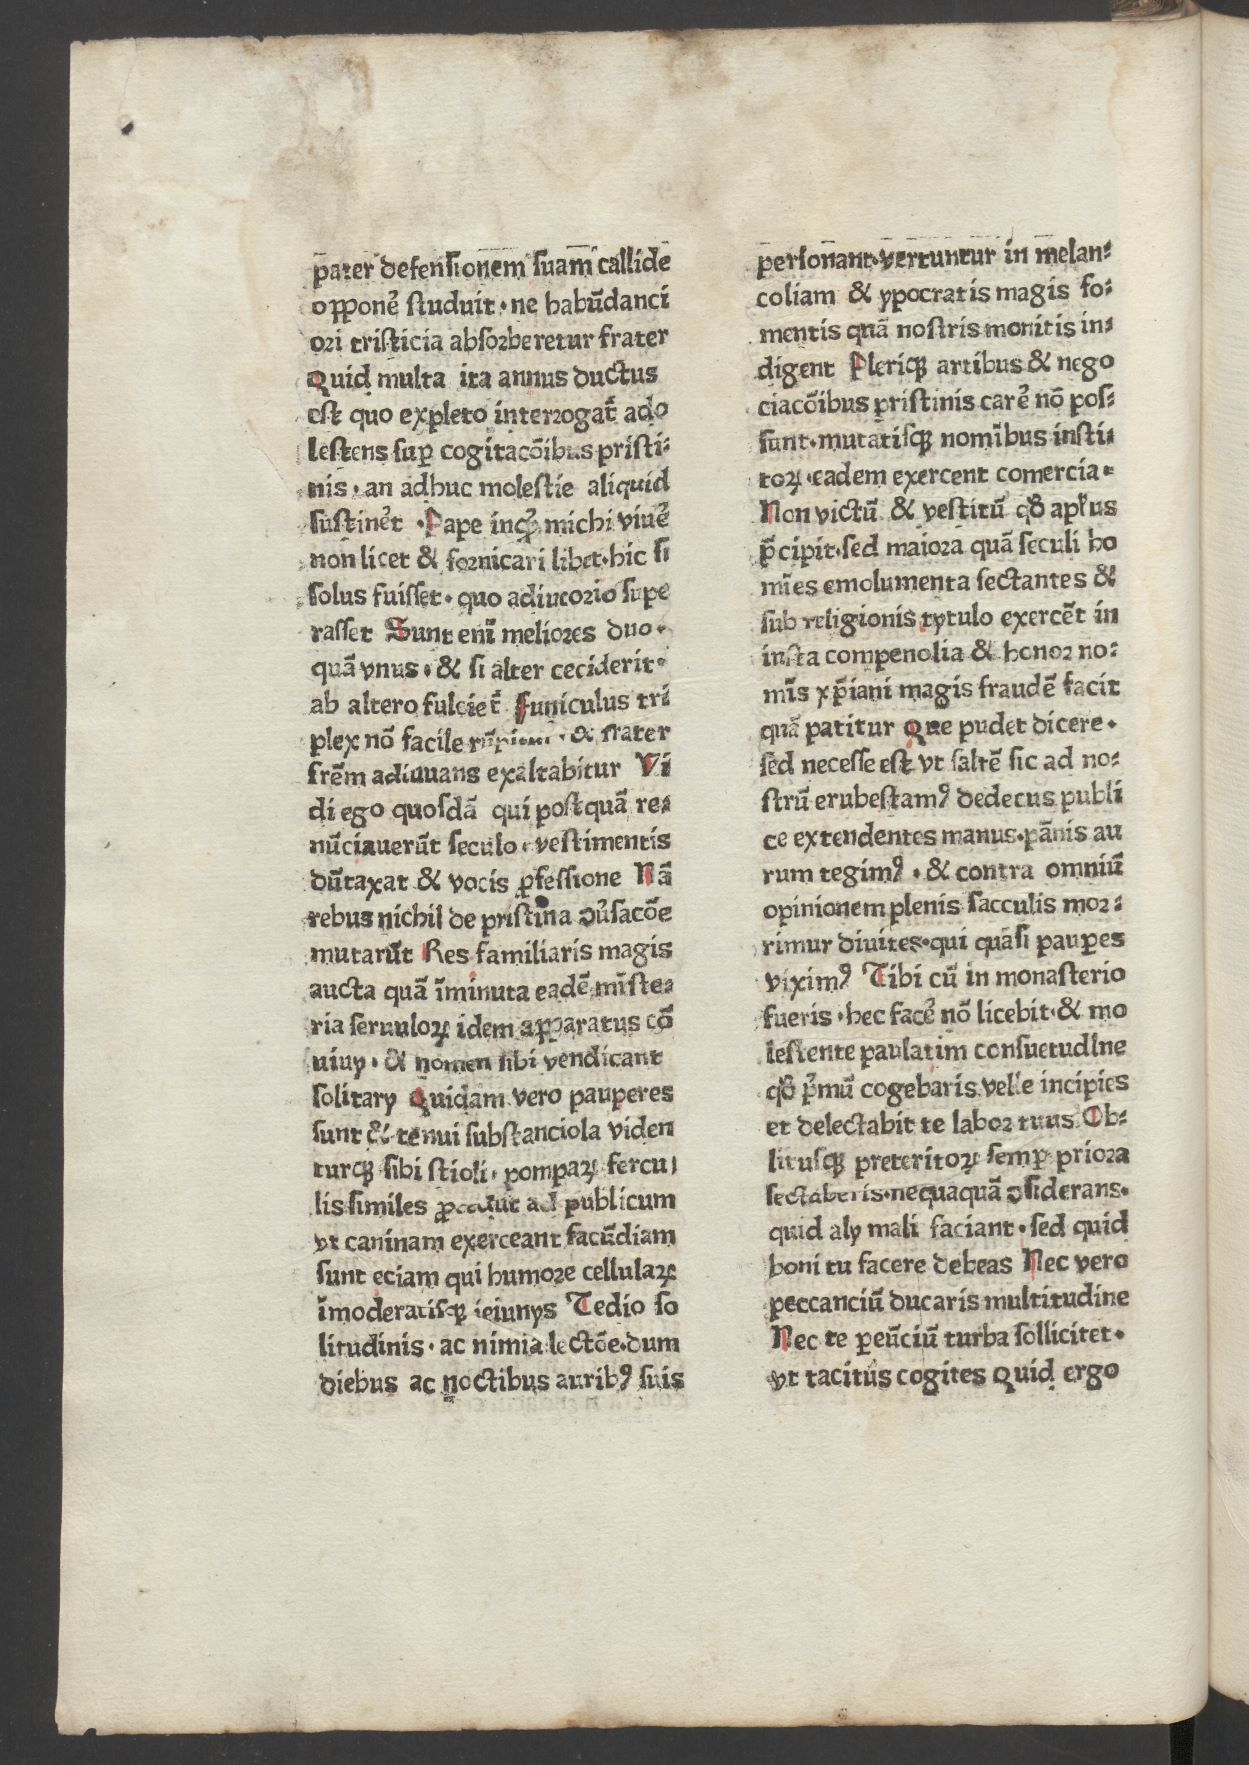 pater defensionem suam callide
opponẽ studuit · ne habũdanci
ori tristicia absorberetur frater
Quid multa ita annus ductus
est quo expleto interrogat̃ ado
lestens suꝑ cogitacõibus pristi⸗
nis · an adhuc molestie aliquid
sustinẽt · Pape inqͥ michi viuẽ
non licet & fornicari libet · hic si
solus fuisset · quo adiutorio supe
rasset Sunt enĩ meliores duo ·
quã vnus · & si alter ceciderit ·
ab altero fulciet̃ Funiculus tri
plex nõ facile · & frater
frẽm adiuuans exaltabitur Vi
di ego quosdã qui postquã re⸗
nũciauerũt seculo · vestimentis
dũtaxat & vocis ꝓfessione Nã
rebus nichil de pristina ↄũsacõe
mutarũt Res familiaris magis
aucta quã ĩminuta eadẽ mĩste⸗
ria seruuloꝝ idem apparatus cõ
uiuy · & nomen sibi vendicant
solitary Quidam vero pauperes
sunt & tenui substanciola viden
turqꝫ sibi stioli · pompaꝝ fercu
lis similes ꝓcedũt ad publicum
vt caninam exerceant facũdiam
sunt eciam qui humore cellulaꝝ
ĩmoderatisqꝫ ieiunys Tedio so
litudinis · ac nimia lectõe · dum
diebus ac noctibus auribꝰ suis
personant · vertuntur in melan⸗
coliam & ypocratis magis fo⸗
mentis quã nostris monitis in⸗
digent Pleriqꝫ artibus & nego
ciacõibus pristinis carẽ nõ pos⸗
sunt · mutatisqꝫ nomĩbus insti⸗
toꝝ · eadem exercent comercia ·
Non victũ & vestitũ qď apl̃us
p̃cipit · sed maiora quã seculi ho
mĩes emolumenta sectantes &
sub religionis tytulo exercẽt in
insta compenolia & honor no⸗
mĩs xp̃iani magis fraudẽ facit
quã patitur Que pudet dicere ·
sed necesse est vt saltẽ sic ad no⸗
strũ erubestamꝰ dedecus publi
ce extendentes manus · pãnis au
rum tegimꝰ · & contra omniũ
opinionem plenis sacculis mor⸗
rimur diuites · qui quãsi pauꝑes
viximꝰ Tibi cũ in monasterio
fueris · hec facẽ nõ licebit · & mo
lestente paulatim consuetudine
qď pͥmũ cogebaris velle incipies
et delectabit te labor tuus Ob⸗
litusqꝫ preteritoꝝ semꝑ priora
sectaberis · nequaquã ↄsiderans ·
quid aly mali faciant · sed quid
boni tu facere debeas Nec vero
peccanciũ ducaris multitudine
Nec te pereũciũ turba sollicitet ·
vt tacitus cogites Quid ergo